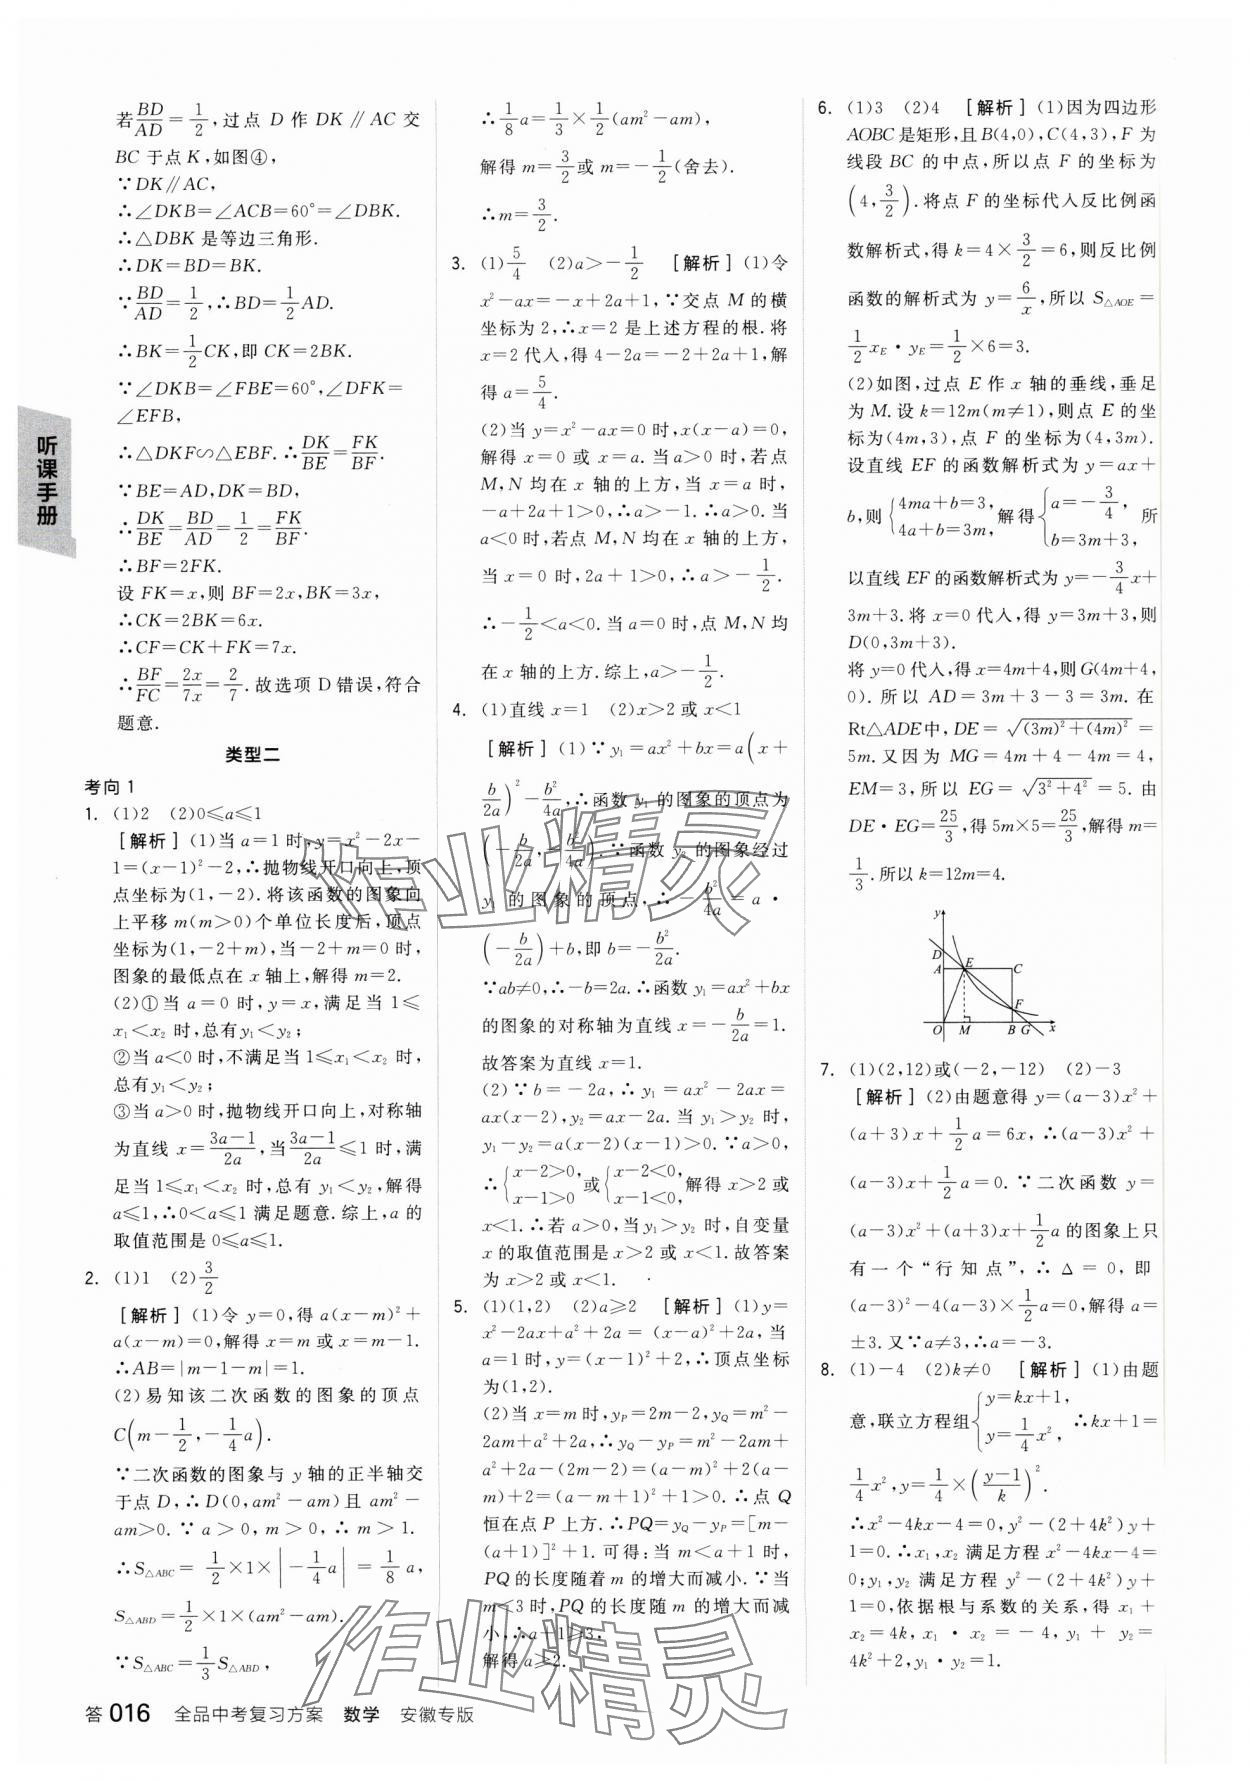 听课手册
若BD/AD=1/2,过点 D 作 DK∥AC 交
BC 于点 K,如图④,
∵DK∥AC,
∴∠DKB=∠ACB=60°=∠DBK.
∴△DBK 是等边三角形.
∴DK=BD=BK.
∵BD/AD=1/2,∴BD=1/2AD.
∴BK=1/2CK,即 CK=2BK.
∵∠DKB=∠FBE=60°,∠DFK=
∠EFB,
∴△DKF∽△EBF.∴DK/BE=FK/BF.
∵BE=AD,DK=BD,
∴DK/BE=BD/AD=1/2=FK/BF.
∴BF=2FK.
设 FK=x,则 BF=2x,BK=3x,
∴CK=2BK=6x.
∴CF=CK+FK=7x.
∴BF/FC=2x/7x=2/7.故选项 D 错误,符合
题意.
类型二
考向 1
1. (1)2 (2)0≤a≤1
[解析] (1)当 a=1 时,y=x²-2x-
1=(x-1)²-2,∴抛物线开口向上,顶
点坐标为(1,-2).将该函数的图象向
上平移 m(m>0)个单位长度后,顶点
坐标为(1,-2+m),当-2+m=0 时,
图象的最低点在 x 轴上,解得 m=2.
(2)①当 a=0 时,y=x,满足当 1≤
x₁<x₂ 时,总有y₁<y₂;
②当 a<0 时,不满足当 1≤x₁<x₂ 时,
总有y₁<y₂;
③当 a>0 时,抛物线开口向上,对称轴
为直线 x=(3a-1)/2a,当(3a-1)/2a≤1 时,满
足当 1≤x₁<x₂ 时,总有 y₁<y₂,解得
a≤1,∴0<a≤1 满足题意.综上,a 的
取值范围是 0≤a≤1.
2. (1)1 (2)3/2
[解析] (1)令 y=0,得 a(x-m)²+
a(x-m)=0,解得 x=m 或 x=m-1.
∴AB=|m-1-m|=1.
(2)易知该二次函数的图象的顶点
C(m-1/2,-1/4a).
∵二次函数的图象与 y 轴的正半轴交
于点 D,∴D(0,am²-am)且 am²-
am>0.∵a>0,m>0,∴m>1.
∴S△ABC=1/2×1×|-1/4a|=1/8a,
S△ABD=1/2×1×(am²-am).
∵S△ABC=1/3S△ABD,
∴1/8a=1/3×1/2(am²-am),
解得 m=3/2或 m=-1/2(舍去).
∴m=3/2.
3. (1)5/4 (2)a>-1/2 [解析] (1)令
x²-ax=-x+2a+1,∵交点 M 的横
坐标为 2,∴x=2 是上述方程的根.将
x=2 代入,得 4-2a=-2+2a+1,解
得 a=5/4.
(2)当 y=x²-ax=0 时,x(x-a)=0,
解得 x=0 或 x=a.当 a>0 时,若点
M,N 均在 x 轴的上方,当 x=a 时,
-a+2a+1>0,∴a>-1.∴a>0.当
a<0时,若点 M,N 均在 x 轴的上方,
当 x=0 时,2a+1>0,∴a>-1/2.
∴-1/2<a<0.当 a=0 时,点 M,N 均
在 x 轴的上方.综上,a>-1/2.
4. (1)直线 x=1 (2)x>2 或 x<1
[解析] (1)∵y₁=ax²+bx=a(x+
b/2a)²-b²/4a,∴函数 y₁ 的图象的顶点为
(-b/2a,-b²/4a).∵函数 y₂ 的图象经过
y₁ 的图象的顶点,∴-b²/4a=a·
(-b/2a)+b,即 b=-b²/2a.
∵ab≠0,∴-b=2a.∴函数 y₁=ax²+bx
的图象的对称轴为直线 x=-b/2a=1.
故答案为直线 x=1.
(2)∵b=-2a,∴y₁=ax²-2ax=
ax(x-2),y₂=ax-2a.当 y₁>y₂ 时,
y₁-y₂=a(x-2)(x-1)>0.∵a>0,
∴{x-2>0, x-1>0 或{x-2<0, x-1<0, 解得 x>2 或
x<1.∴若 a>0,当y₁>y₂ 时,自变量
x 的取值范围是 x>2 或 x<1.故答案
为 x>2 或 x<1.
5. (1)(1,2) (2)a≥2 [解析] (1)y=
x²-2ax+a²+2a=(x-a)²+2a,当
a=1时,y=(x-1)²+2,∴顶点坐标
为(1,2).
(2)当 x=m 时,yP=2m-2,yQ=m²-
2am+a²+2a,∴yQ-yP=m²-2am+
a²+2a-(2m-2)=(a-m)²+2(a-
m)+2=(a-m+1)²+1>0.∴点 Q
恒在点 P 上方.∴PQ=yQ-yP=[m-
(a+1)]²+1.可得:当 m<a+1 时,
PQ的长度随着 m 的增大而减小.∵当
m≤3 时,PQ 的长度随 m 的增大而减
小,∴a+1≥3,
解得 a≥2.
6. (1)3 (2)4 [解析] (1)因为四边形
AOBC 是矩形,且 B(4,0),C(4,3),F 为
线段 BC 的中点,所以点 F 的坐标为
(4,3/2).将点 F 的坐标代入反比例函
数解析式,得 k=4×3/2=6,则反比例
函数的解析式为 y=6/x,所以 S△AOE=
1/2xE·yE=1/2×6=3.
(2)如图,过点 E 作 x 轴的垂线,垂足
为 M.设 k=12m(m≠1),则点 E 的坐
标为(4m,3),点 F 的坐标为(4,3m).
设直线 EF 的函数解析式为 y=ax+
b,则{4ma+b=3, 4a+b=3m, 解得{a=-3/4, b=3m+3, 所
以直线 EF 的函数解析式为 y=-3/4x+
3m+3.将 x=0 代入,得 y=3m+3,则
D(0,3m+3).
将 y=0 代入,得 x=4m+4,则 G(4m+4,
0).所以 AD=3m+3-3=3m.在
Rt△ADE中,DE=√((3m)²+(4m)²)=
5m.又因为 MG=4m+4-4m=4,
EM=3,所以 EG=√(3²+4²)=5.由
DE·EG=25/3,得 5m×5=25/3,解得 m=
1/3.所以 k=12m=4.
y
D
A E C
F
O M B G x
7. (1)(2,12)或(-2,-12) (2)-3
[解析] (2)由题意得 y=(a-3)x²+
(a+3)x+1/2a=6x,∴(a-3)x²+
(a-3)x+1/2a=0.∵二次函数 y=
(a-3)x²+(a+3)x+1/2a 的图象上只
有一个“行知点”,∴Δ=0,即
(a-3)²-4(a-3)×1/2a=0,解得 a=
±3.又∵a≠3,∴a=-3.
8. (1)-4 (2)k≠0 [解析] (1)由题
意,联立方程组{y=kx+1, y=1/4x², ∴kx+1=
1/4x²,y=1/4×((y-1)/k)².
∴x²-4kx-4=0,y²-(2+4k²)y+
1=0.∴x₁,x₂ 满足方程 x²-4kx-4=
0;y₁,y₂ 满足方程 y²-(2+4k²)y+
1=0,依据根与系数的关系,得 x₁+
x₂=4k,x₁·x₂=-4,y₁+y₂=
4k²+2,y₁·y₂=1.
作业精灵
作业精灵
答 016 全品中考复习方案 数学 安徽专版